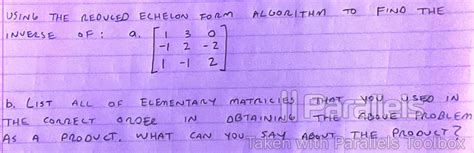 USING THE REDUCED ECHELON FORM ALGORITHM TO FIND THE
INVERSE OF: a. [ 1 3 0
-1 2 -2
1 -1 2 ]
b. LIST ALL OF ELEMENTARY MATRICIES THAT YOU USED IN
THE CORRECT ORDER IN OBTAINING THE ABOVE PROBLEM
AS A PRODUCT. WHAT CAN YOU SAY ABOUT THE PRODUCT?
|| Parallels
Taken with Parallels Toolbox